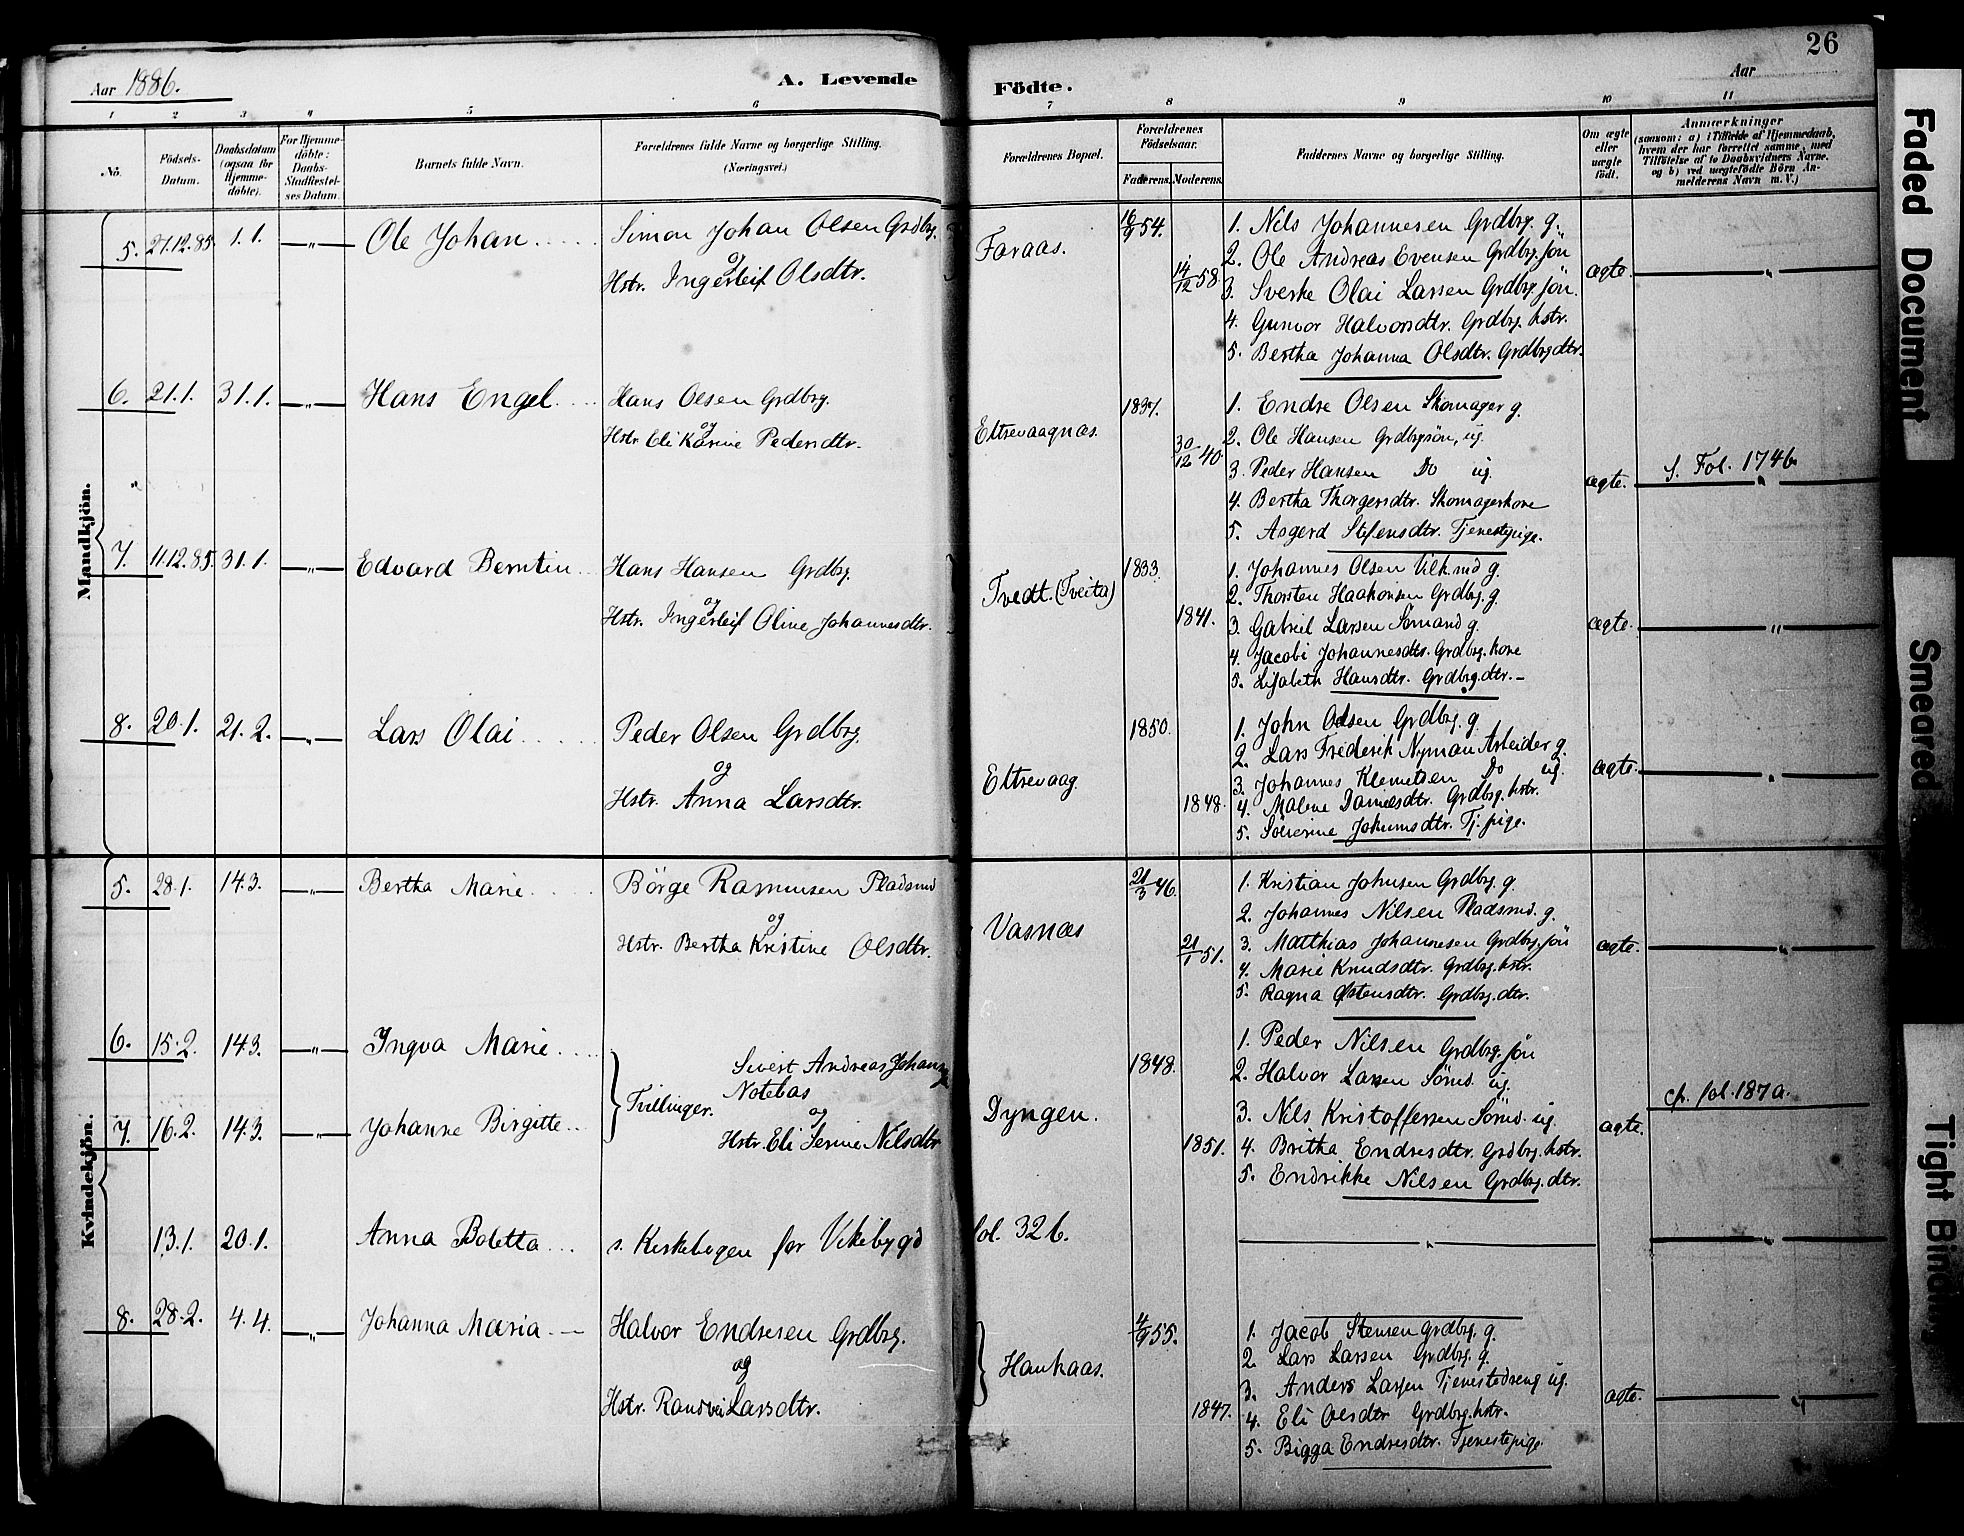 Aar 1886.
A. Levende
Födte.
Aar
26
1 2 3 4 5 6 7 8 9 10 11
No.
Födsels-Datum.
Daabsdatum (ogsaa för Hjemme-döbte).
For Hjemme-döbte: Daabs-Stadfestel-ses Datum.
Barnets fulde Navn.
Forældrenes fulde Navne og borgerlige Stilling.
(Næringsvei.)
Forældrenes Bopæl.
Forældrenes Födselsaar.
Faderens. Moderens.
Faddernes Navne og borgerlige Stilling.
Om ægte eller uægte födt.
Anmærkninger
(saasom: a) i Tilfælde af Hjemmedaab,
hvem der har forrettet samme, med
Tilföielse af to Daabsvidners Navne.
og b) ved uægtefödte Börn An-
melderens Navn m. V.)
Mandkjön.
5. 21.12.85. 1.1. —„— Ole Johan
Simon Johan Olsen Grdbrg.
og
Hstr. Ingerleif Olsdtr.
Faraas.
16/9 54.
14/12 58.
1. Nils Johannesen Grdbrg. g.
2. Ole Andreas Evensen Grdbrg. sön
3. Sverke Olai Larsen Grdbrg. sön.
4. Gunvor Halvorsdtr. Grdbrg. hstr.
5. Bertha Johanna Olsdtr. Grdbrg dtr.
ægte. „
6. 21.1. 31.1. —„— Hans Engel
Hans Olsen Grdbrg.
og
Hstr. Eli Karine Pedersdtr.
Eltrevaagnæs.
1837.
30/12 40.
1. Endre Olsen Skomager g.
2. Ole Hansen Grdbrgsön, ug.
3. Peder Hansen Do ug.
4. Bertha Thorgersdtr. Skomagerkone
5. Asgerd Stefensdtr. Tjenestepige.
ægte.
s. Fol. 174 b.
7. 11.12.85. 31.1. —„— Edvard Berntin
Hans Hansen Grdbrg.
og
Hstr. Ingerleif Oline Johannesdtr.
Tvedt. (Tveita)
1833.
1841.
1. Johannes Olsen Vilk.md g.
2. Thorsten Haakonsen Grdbrg. g.
3. Gabriel Larsen Sömand g.
4. Jacobi Johannesdtr. Grdbrg. kone
5. Lisabeth Hansdtr. Grdbrg. dtr.
ægte. „
8. 20.1. 21.2. —„— Lars Olai
Peder Olsen Grdbrg.
og
Hstr. Anna Larsdtr.
Eltrevaag.
1850.
1848.
1. John Olsen Grdbrg. g.
2. Lars Frederik Nyman Arbeider g.
3. Johannes Klemetsen Do ug.
4. Malene Danielsdtr. Grdbrg. hstr.
5. Johnnsdtr. Tj. pige.
ægte. „
Kvindekjön.
5. 28.1. 14.3. —„— Bertha Marie
Börge Rasmusen Pladsmd
og
Hstr. Bertha Kristine Olsdtr.
Vasnæs
21/3 46.
21/1 51.
1. Kristian Johnsen Grdbrg. g.
2. Johannes Nilsen Pladsmd. g.
3. Matthias Johannesen Grdbrg. sön
4. Marie Knudsdtr. Grdbrg. hstr.
5. Ragna Östensdtr. Grdbrg. dtr.
ægte. „
6. 15.2. 14.3. —„— Ingva Marie
7. 16.2. 14.3. —„— Johanne Birgitte
Tvillinger.
Sivert Andreas Johans
Notebas
og
Hstr. Eli Serine Nilsdtr
Dyngen.
1848.
1851.
1. Peder Nilsen Grdbrg. sön
2. Halvor Larsen Sömd. ug.
3. Nils Kristoffersen Sömd. ug.
4. Britha Endresdtr. Grdbrg. hstr.
5. Endrikke Nilsen Grdbrg. dtr.
ægte.
cfr. fol. 187 a.
13.1. 20.1. Anna Boletta
s. Kirkebogen for Vikebygd
fol. 32 b.
„ „
8. 28.2. 4.4. —„— Johanna Maria
Halvor Endresen Grdbrg.
og
Hstr. Randvei Larsdtr.
Haukaas.
4/9 55.
1847.
1. Jacob Stensen Grdbrg. g.
2. Lars Larsen Grdbrg. g.
3. Anders Larsen Tjenestedreng ug.
4. Eli Olsdtr Grdbrg. hstr.
5. Bigga Endresdtr. Tjenestepige.
ægte. „
Faded Document
Smeared
Tight Binding